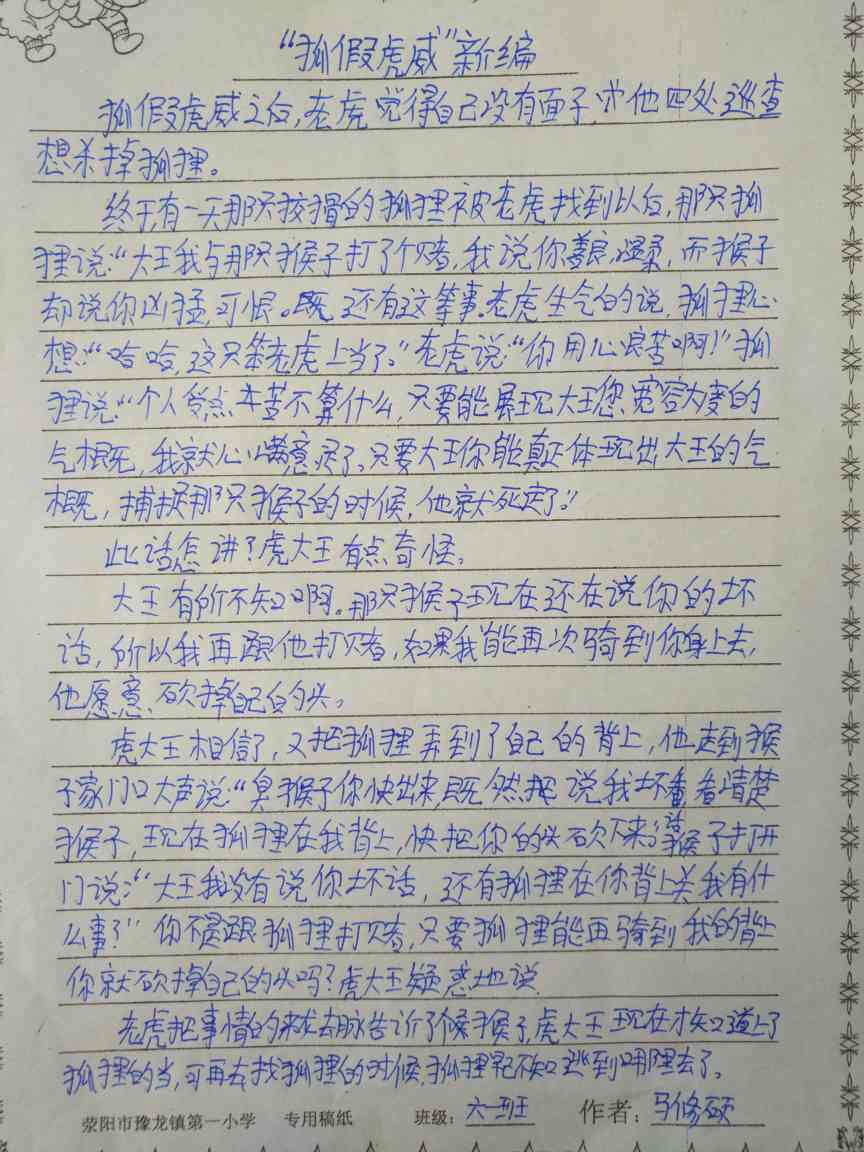 “狐假虎威”新编
狐假虎威之后,老虎觉得自己没有面子,他四处巡查
想杀掉狐狸。
终于有一天那只狡猾的狐狸被老虎找到以后,那只狐
狸说:“大王我与那只猴子打了个赌,我说你善良,温柔,而猴子
却说你凶猛,可恨。既还有这等事。老虎生气的说,狐狸心
想:“哈哈,这只笨老虎上当了。”老虎说:“你用心良苦啊!”狐
狸说:“个人受点辛苦不算什么,只要能展现大王您宽容大度的
气概,我就心满意足了。只要大王你能真正体现出大王的气
概,捕捉那只猴子的时候,他就死定了!”
此话怎讲?虎大王有点奇怪。
大王有所不知啊。那只猴子现在还在说你的坏
话,所以我再跟他打赌,如果我能再次骑到你身上去,
他愿意砍掉自己的头。
虎大王相信了,又把狐狸弄到了自己的背上,他走到猴
子家门口大声说:“臭猴子你快出来,既然说我坏看清楚
猴子,现在狐狸在我背上,快把你的头砍下来”猴子打开
门说:“大王我没有说你坏话,还有狐狸在你背上关我有什
么事?”你不是跟狐狸打赌,只要狐狸能再骑到我的背上
你就砍掉自己的头吗?虎大王疑惑地说
老虎把事情的来龙去脉告诉了猴子,虎大王现在才知道上了
狐狸的当,可再去找狐狸的时候,狐狸早不知逃到哪里去了。
荥阳市豫龙镇第一小学 专用稿纸 班级:六一班 作者:马修硕